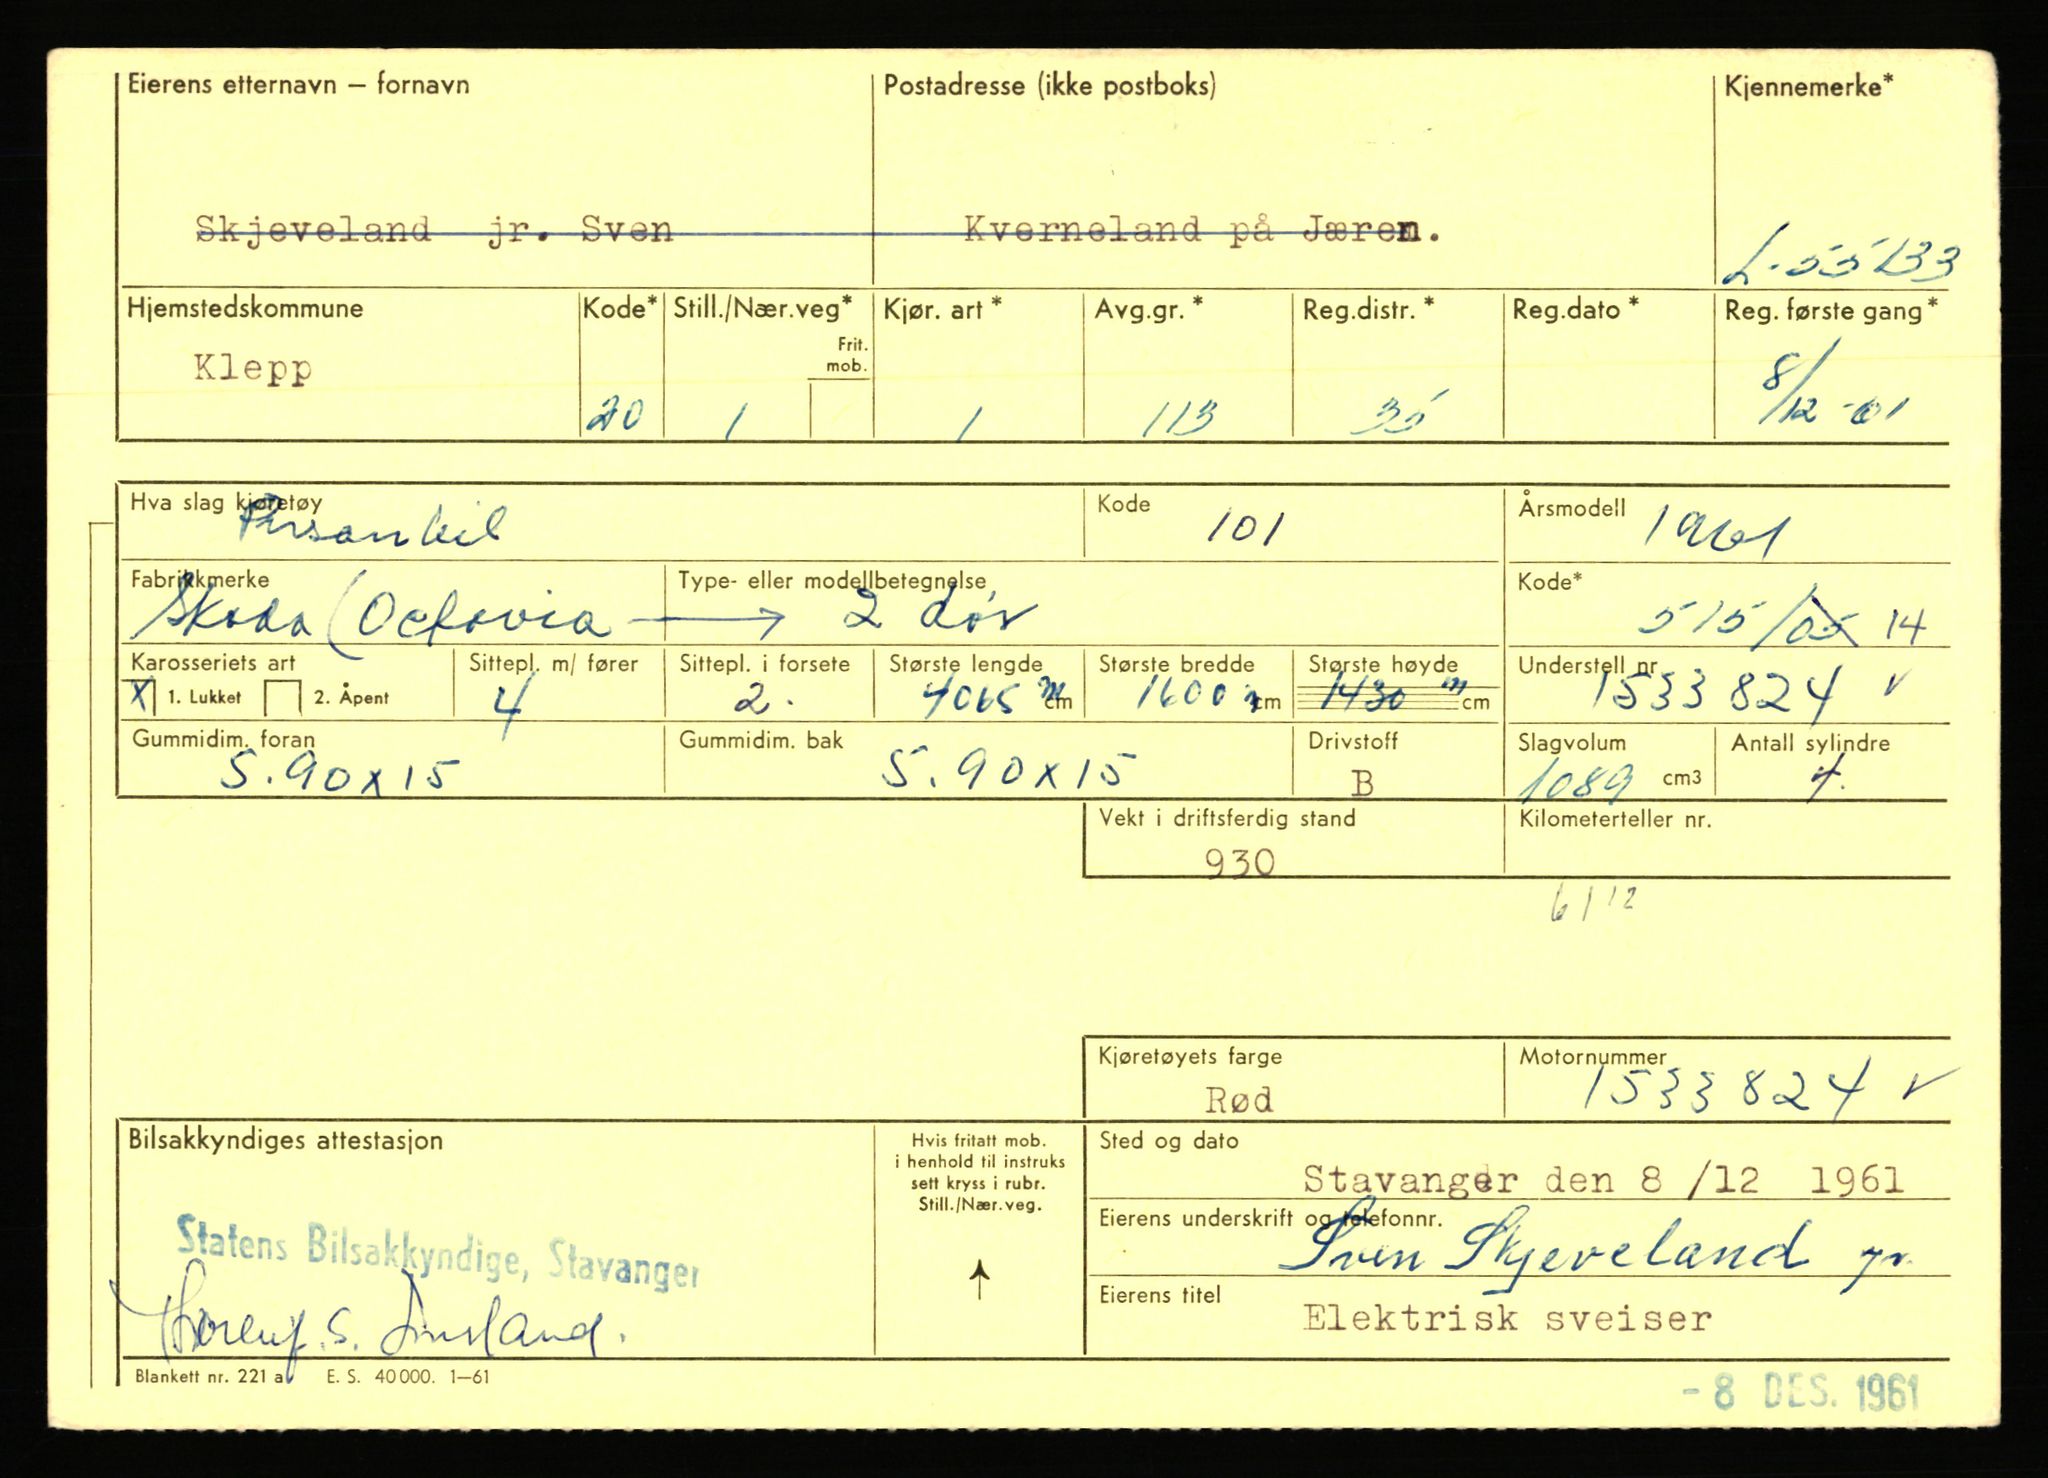 Eierens etternavn — fornavn Postadresse (ikke postboks) Kjennemerke*
Skjeveland jr. Sven Kverneland på Jæren.
L-55133
Hjemstedskommune Kode* Still./Nær.veg* Kjør. art* Avg.gr.* Reg.distr.* Reg.dato* Reg. første gang*
Frit.
mob.
Klepp
20 1 1 113 35 8/12-61
Hva slag kjøretøy Kode Årsmodell
Personbil 101 1961
Fabrikkmerke Type- eller modellbetegnelse Kode*
Skoda (Octavia → 2 dør 515/05 14
Karosseriets art Sittepl. m/ fører Sittepl. i forsete Største lengde Største bredde Største høyde Understell nr.
X 1. Lukket 2. Åpent 4 2. 4065 m cm 1600 m cm 1430 m cm 1533824 v
Gummidim. foran Gummidim. bak Drivstoff Slagvolum Antall sylindre
5.90x15 5.90x15 B 1089 cm3 4.
Vekt i driftsferdig stand Kilometerteller nr.
930
6112
Kjøretøyets farge Motornummer
Rød 1533824 v
Bilsakkyndiges attestasjon
Hvis fritatt mob.
i henhold til instruks
sett kryss i rubr.
Still./Nær.veg.
↑
Sted og dato
Stavanger den 8 /12 1961
Eierens underskrift og telefonnr.
Sven Skjeveland jr.
Statens Bilsakkyndige, Stavanger
Eierens titel
Elektrisk sveiser
Blankett nr. 221 a E. S. 40000. 1—61
- 8 DES. 1961